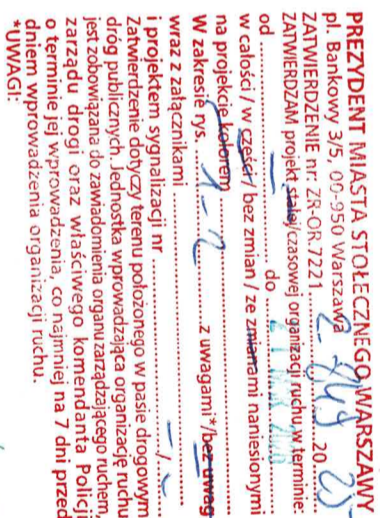 PREZYDENT MIASTA STOŁECZNEGO WARSZAWY
pl. Bankowy 3/5, 00-950 Warszawa
ZATWIERDZENIE nr: ZR-OR.7221........20 25
ZATWIERDZAM projekt stałej/czasowej organizacji ruchu w terminie:
od ........ do ........
w całości / w części / bez zmian / ze zmianami naniesionymi
na projekcie kolorem ........
W zakresie rys. 1-2 z uwagami*/bez uwag
wraz z załącznikami ........
i projektem sygnalizacji nr ........
Zatwierdzenie dotyczy terenu położonego w pasie drogowym
dróg publicznych. Jednostka wprowadzająca organizację ruchu
jest zobowiązana do zawiadomienia organu zarządzającego ruchem,
zarządu drogi oraz właściwego komendanta Policji
o terminie jej wprowadzenia, co najmniej na 7 dni przed
dniem wprowadzenia organizacji ruchu.
*UWAGI: